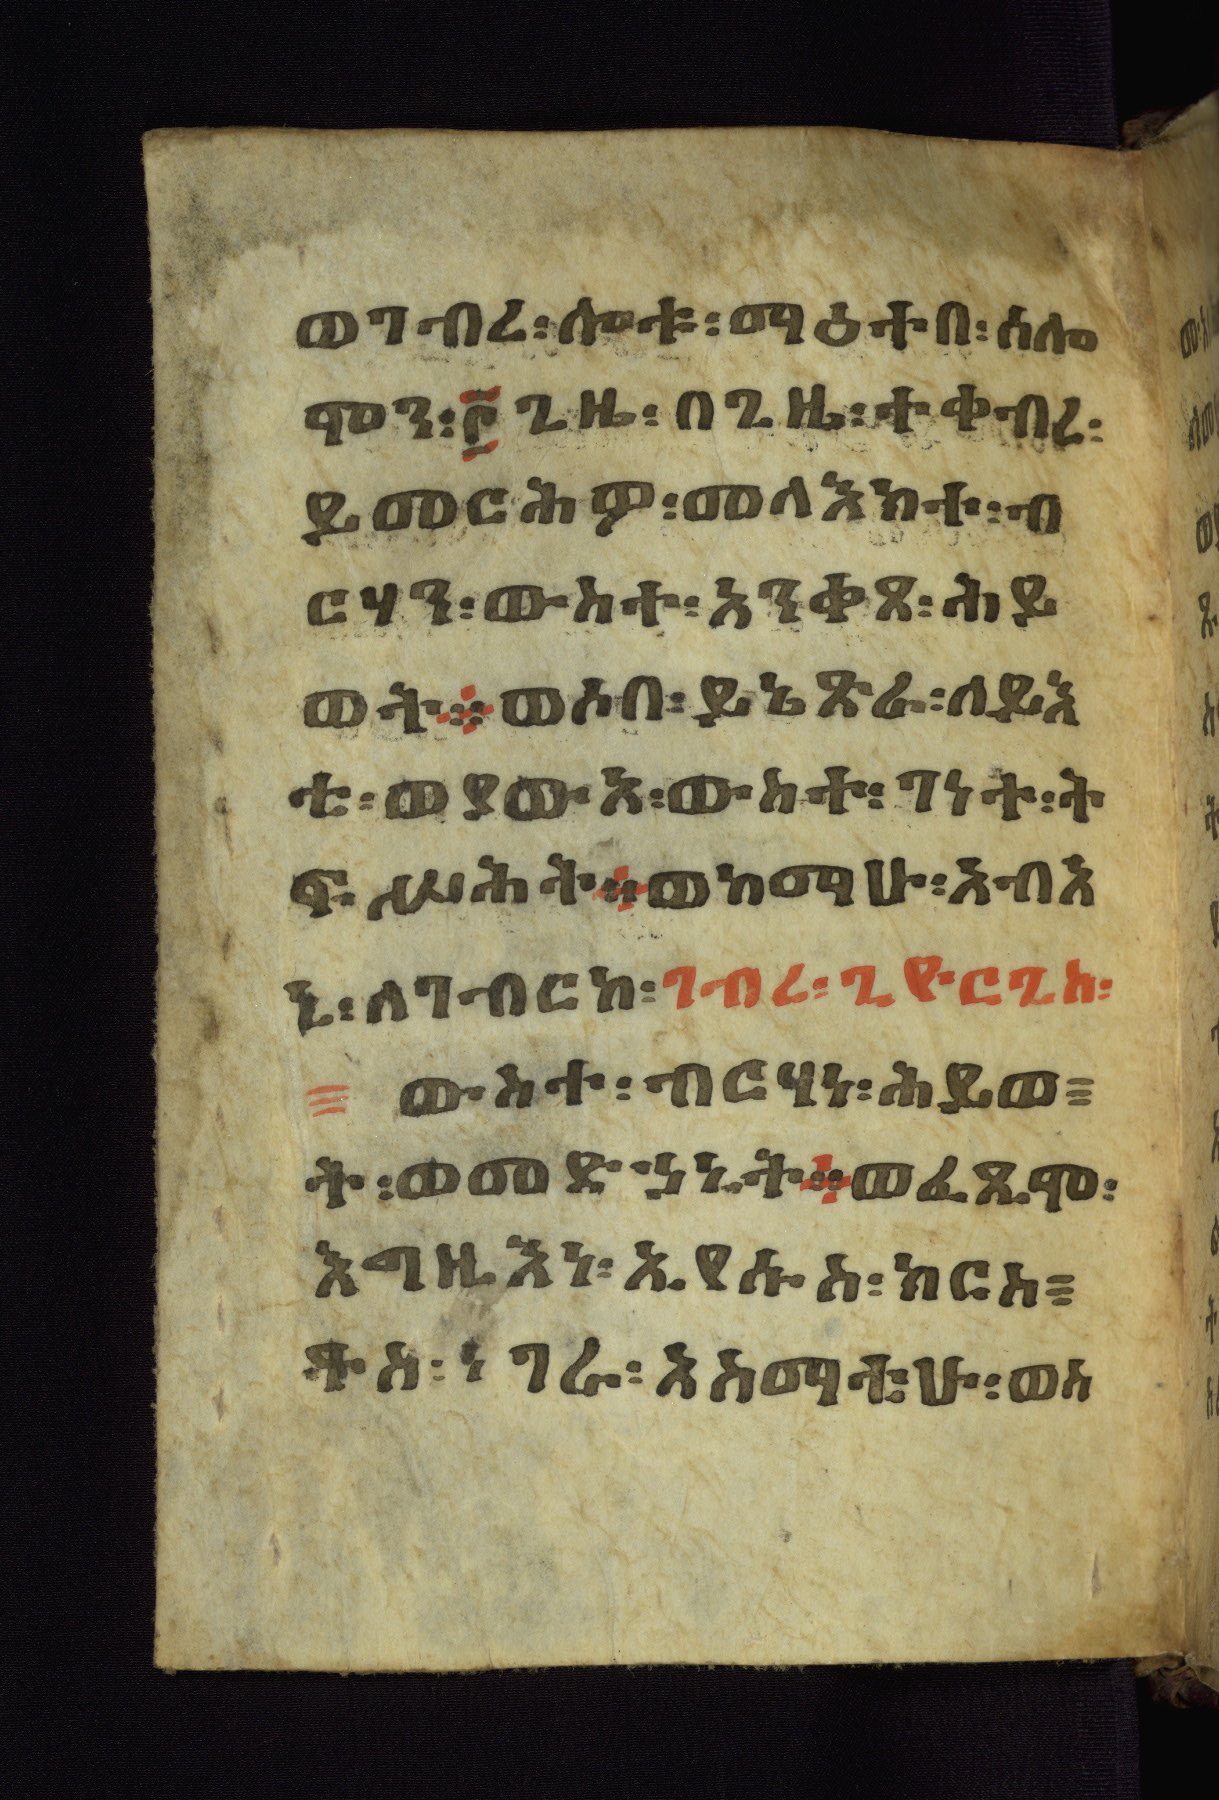 ወገብረ፡ ሎቱ፡ ማዕተበ፡ ሰሎ
ሞን፡ ፫ ጊዜ፡ በጊዜ፡ ተቀብረ፡
ይመርሕዎ፡ መላእክተ፡ ብ
ርሃን፡ ውስተ፡ አንቀጸ፡ ሕይ
ወት። ወሶበ፡ ይኔጽራ፡ ለይእ
ቲ፡ ወያውእ፡ ውስተ፡ ገነተ፡ ት
ፍሥሕት። ወከማሁ፡ አብእ
ኒ፡ ለገብርከ፡ ገብረ፡ ጊዮርጊስ፡
ውስተ፡ ብርሃነ፡ ሕይወ
ት፡ ወመድኃኒት። ወፈጺሞ፡
እግዚእነ፡ ኢየሱስ፡ ክርስ
ቶስ፡ ነገራ፡ አስማቲሁ፡ ወስ